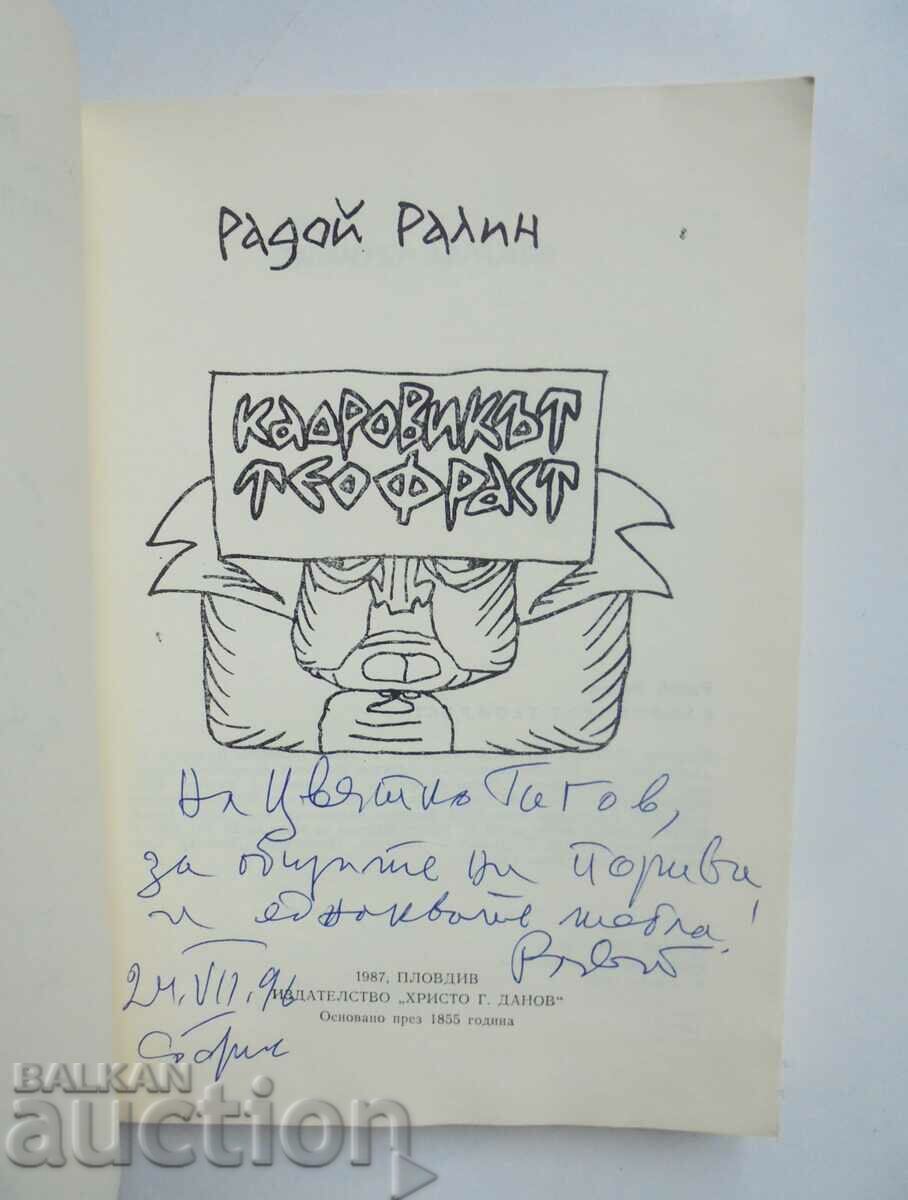 Радой Ралин
КАДРОВИКЪТ
ТЕОФРАСТ
На Цвятко Гигов,
за общите ни пориви
и еднаквите тегла!
24.VII.96
София
1987, ПЛОВДИВ
ИЗДАТЕЛСТВО „ХРИСТО Г. ДАНОВ"
Основано през 1855 година
BALKAN
auction